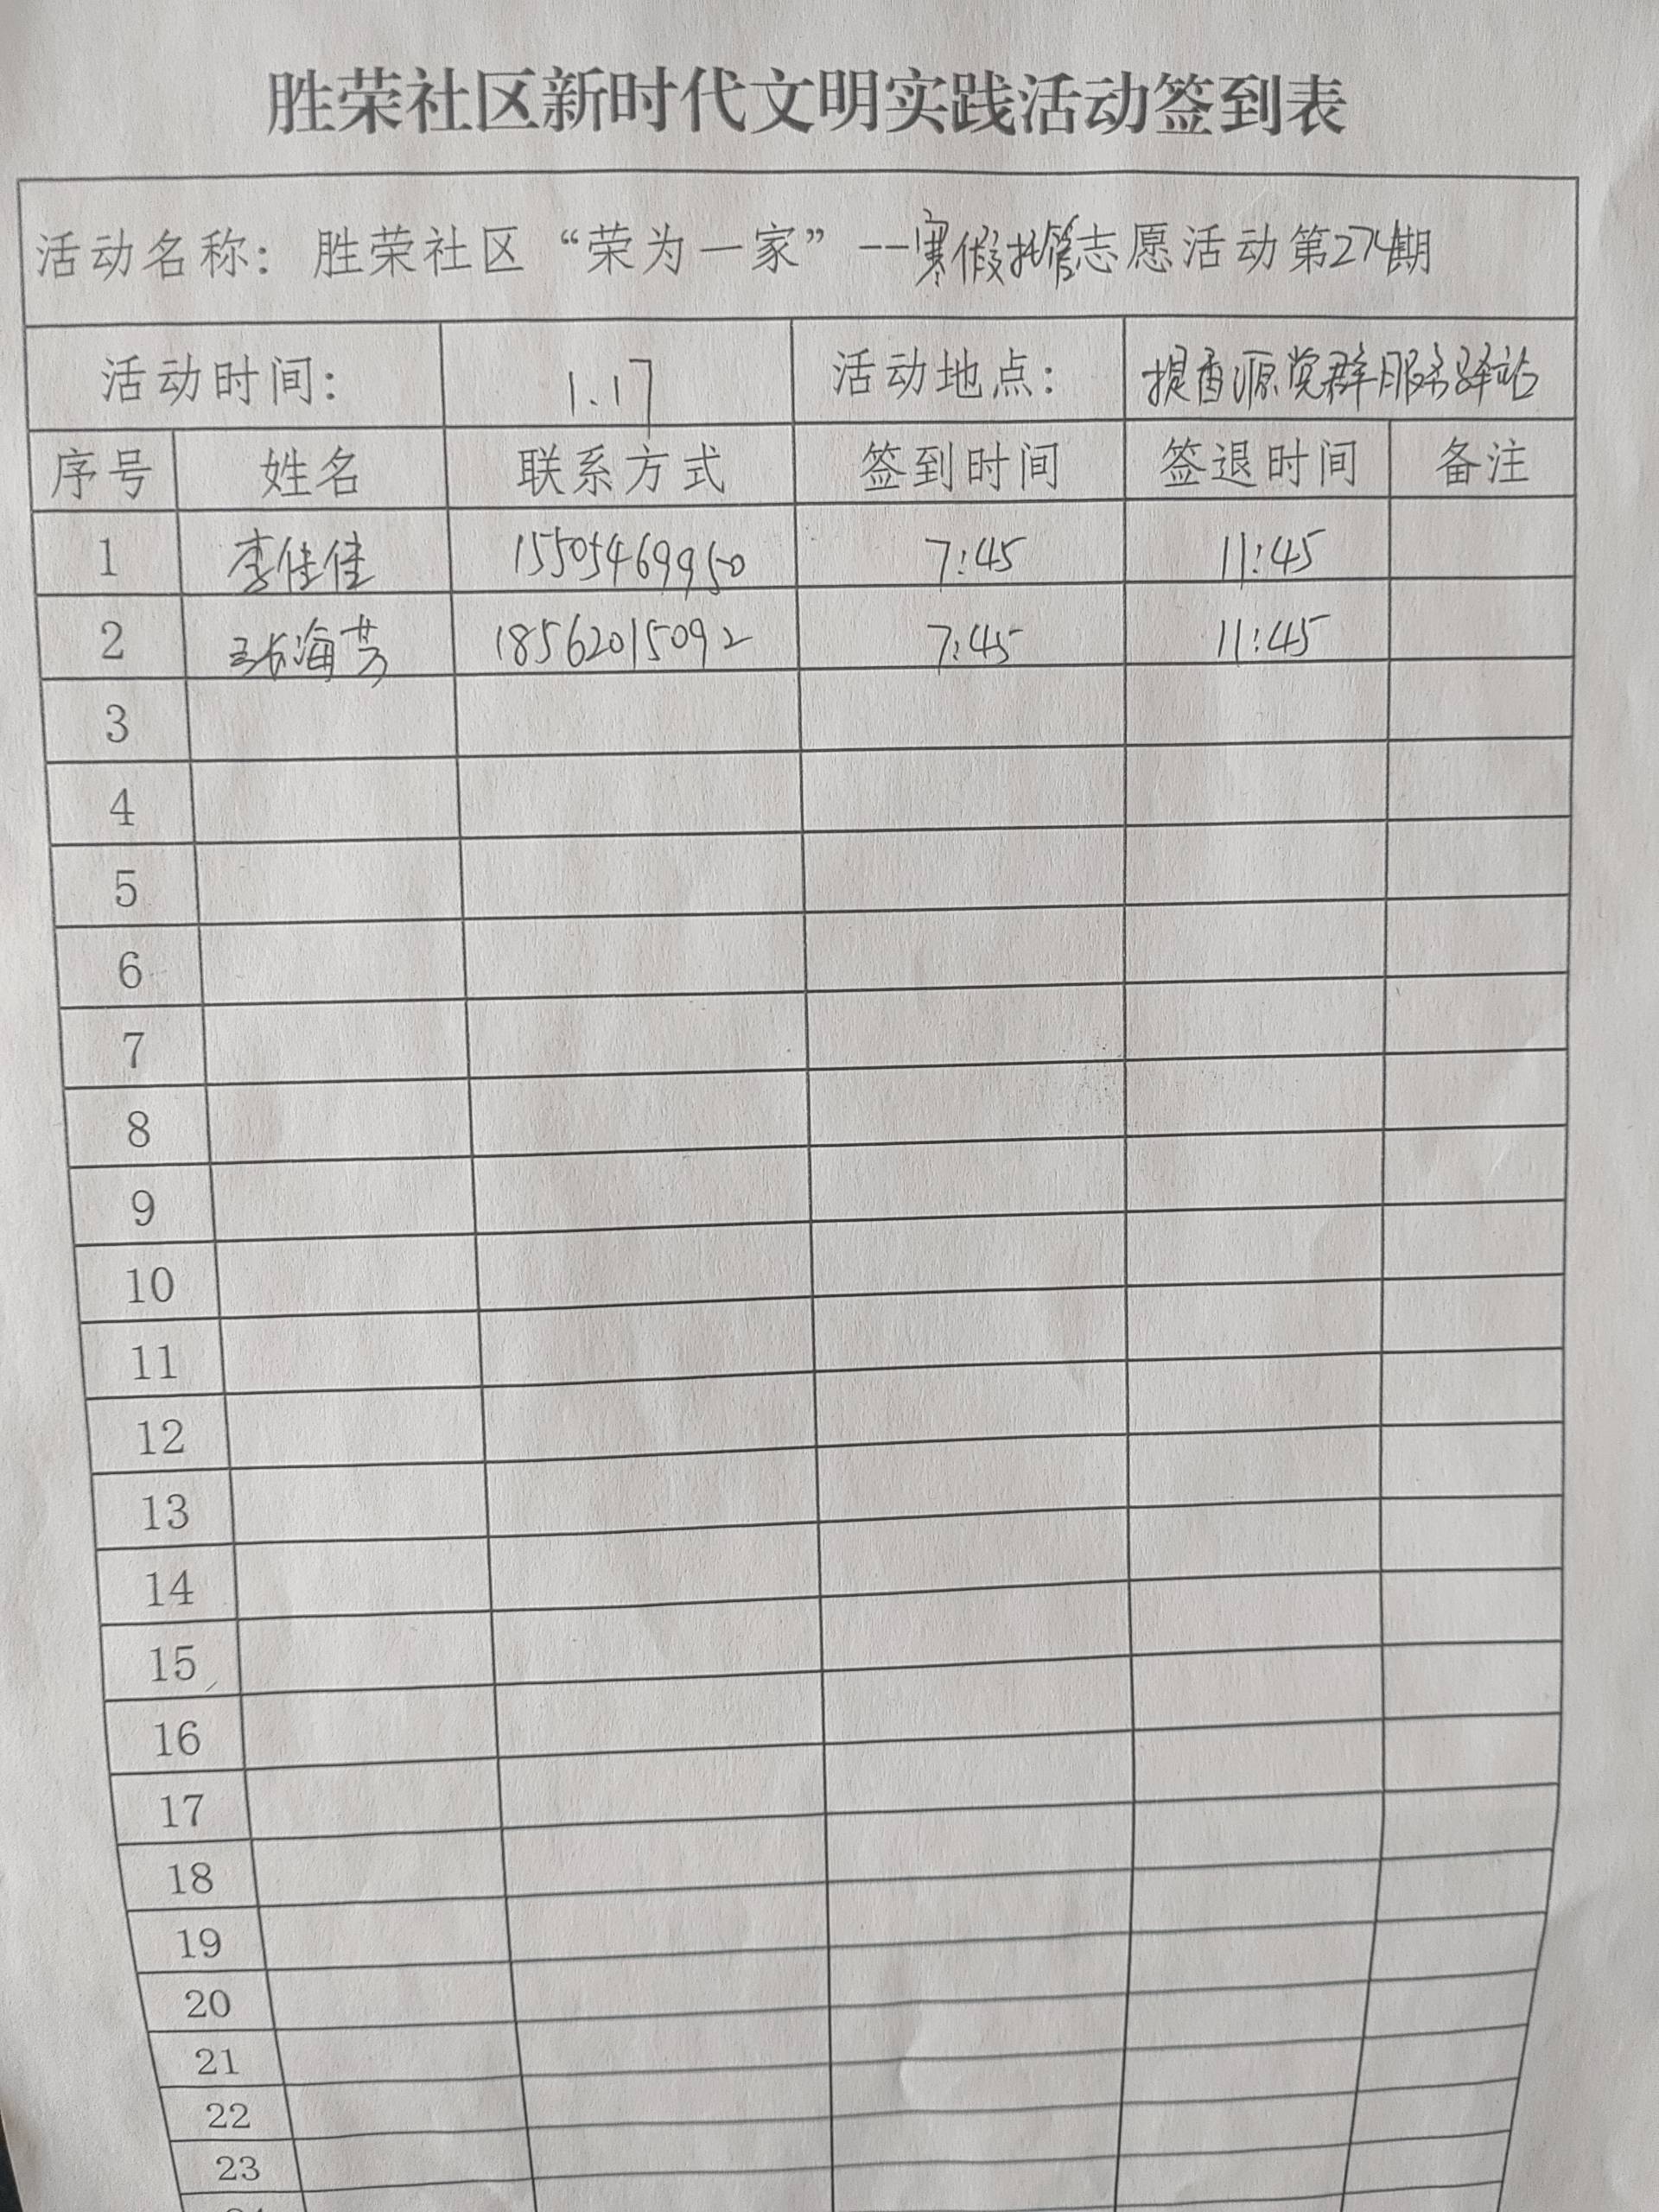 胜荣社区新时代文明实践活动签到表
活动名称：胜荣社区“荣为一家”--寒假托管志愿活动第274期
活动时间： 1.17 活动地点： 提香源党群服务驿站
序号 姓名 联系方式 签到时间 签退时间 备注
1 李佳佳 15505469950 7:45 11:45
2 张海芳 18562015092 7:45 11:45
3
4
5
6
7
8
9
10
11
12
13
14
15
16
17
18
19
20
21
22
23